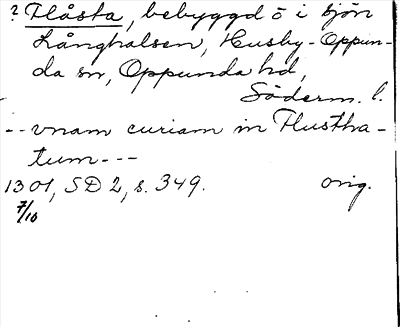 ? Flåsta, bebyggd ö i sjön
Långhalsen, Husby-Oppun-
da sn, Oppunda hd,
Söderm. l.
-- vnam curiam in Flustha-
tum ---
1301, SD 2, s. 349. orig.
7/10